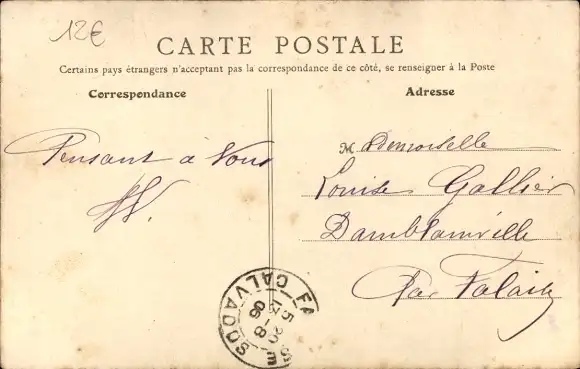 12€
CARTE POSTALE
Certains pays étrangers n'acceptant pas la correspondance de ce côté, se renseigner à la Poste
Correspondance
Adresse
Pensant à Vous
M Demoiselle
Louise Gallier
Damblainville
Par Falaise
CALVADOS
5-20
-8
06